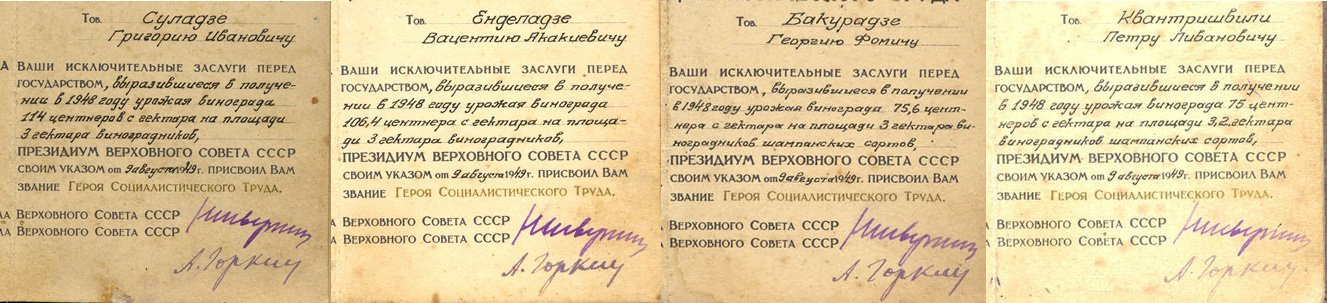 Тов. Суладзе
Григорию Ивановичу
А ВАШИ ИСКЛЮЧИТЕЛЬНЫЕ ЗАСЛУГИ ПЕРЕД
ГОСУДАРСТВОМ, выразившиеся в получе-
нии в 1948 году урожая винограда
114 центнеров с гектара на площади
3 гектара виноградников,
ПРЕЗИДИУМ ВЕРХОВНОГО СОВЕТА СССР
СВОИМ УКАЗОМ от 9 августа 1949 г. ПРИСВОИЛ ВАМ
ЗВАНИЕ ГЕРОЯ СОЦИАЛИСТИЧЕСКОГО ТРУДА.
ВЕРХОВНОГО СОВЕТА СССР
ВЕРХОВНОГО СОВЕТА СССР
А. Горкин
Тов. Енделадзе
Вацентию Акакиевичу
ВАШИ ИСКЛЮЧИТЕЛЬНЫЕ ЗАСЛУГИ ПЕРЕД
ГОСУДАРСТВОМ, выразившиеся в получе-
нии в 1948 году урожая винограда
106,4 центнера с гектара на площа-
ди 3 гектара виноградников,
ПРЕЗИДИУМ ВЕРХОВНОГО СОВЕТА СССР
СВОИМ УКАЗОМ от 9 августа 1949 г. ПРИСВОИЛ ВАМ
ЗВАНИЕ ГЕРОЯ СОЦИАЛИСТИЧЕСКОГО ТРУДА.
ВЕРХОВНОГО СОВЕТА СССР
А ВЕРХОВНОГО СОВЕТА СССР
А. Горкин
Тов. Бакурадзе
Георгию Фомичу
ВАШИ ИСКЛЮЧИТЕЛЬНЫЕ ЗАСЛУГИ ПЕРЕД
ГОСУДАРСТВОМ, выразившиеся в получении
в 1948 году урожая винограда 75,6 цент-
нера с гектара на площади 3 гектара ви-
ноградников шампанских сортов,
ПРЕЗИДИУМ ВЕРХОВНОГО СОВЕТА СССР
СВОИМ УКАЗОМ от 9 августа 1949 г. ПРИСВОИЛ ВАМ
ЗВАНИЕ ГЕРОЯ СОЦИАЛИСТИЧЕСКОГО ТРУДА.
А ВЕРХОВНОГО СОВЕТА СССР
А ВЕРХОВНОГО СОВЕТА СССР
А. Горкин
Тов. Квантришвили
Петру Ливановичу
ВАШИ ИСКЛЮЧИТЕЛЬНЫЕ ЗАСЛУГИ ПЕРЕД
ГОСУДАРСТВОМ, выразившиеся в получении
в 1948 году урожая винограда 75 цент-
неров с гектара на площади 3,2 гектара
виноградников шампанских сортов,
ПРЕЗИДИУМ ВЕРХОВНОГО СОВЕТА СССР
СВОИМ УКАЗОМ от 9 августа 1949 г. ПРИСВОИЛ ВАМ
ЗВАНИЕ ГЕРОЯ СОЦИАЛИСТИЧЕСКОГО ТРУДА.
ВЕРХОВНОГО СОВЕТА СССР
А ВЕРХОВНОГО СОВЕТА СССР
А. Горкин